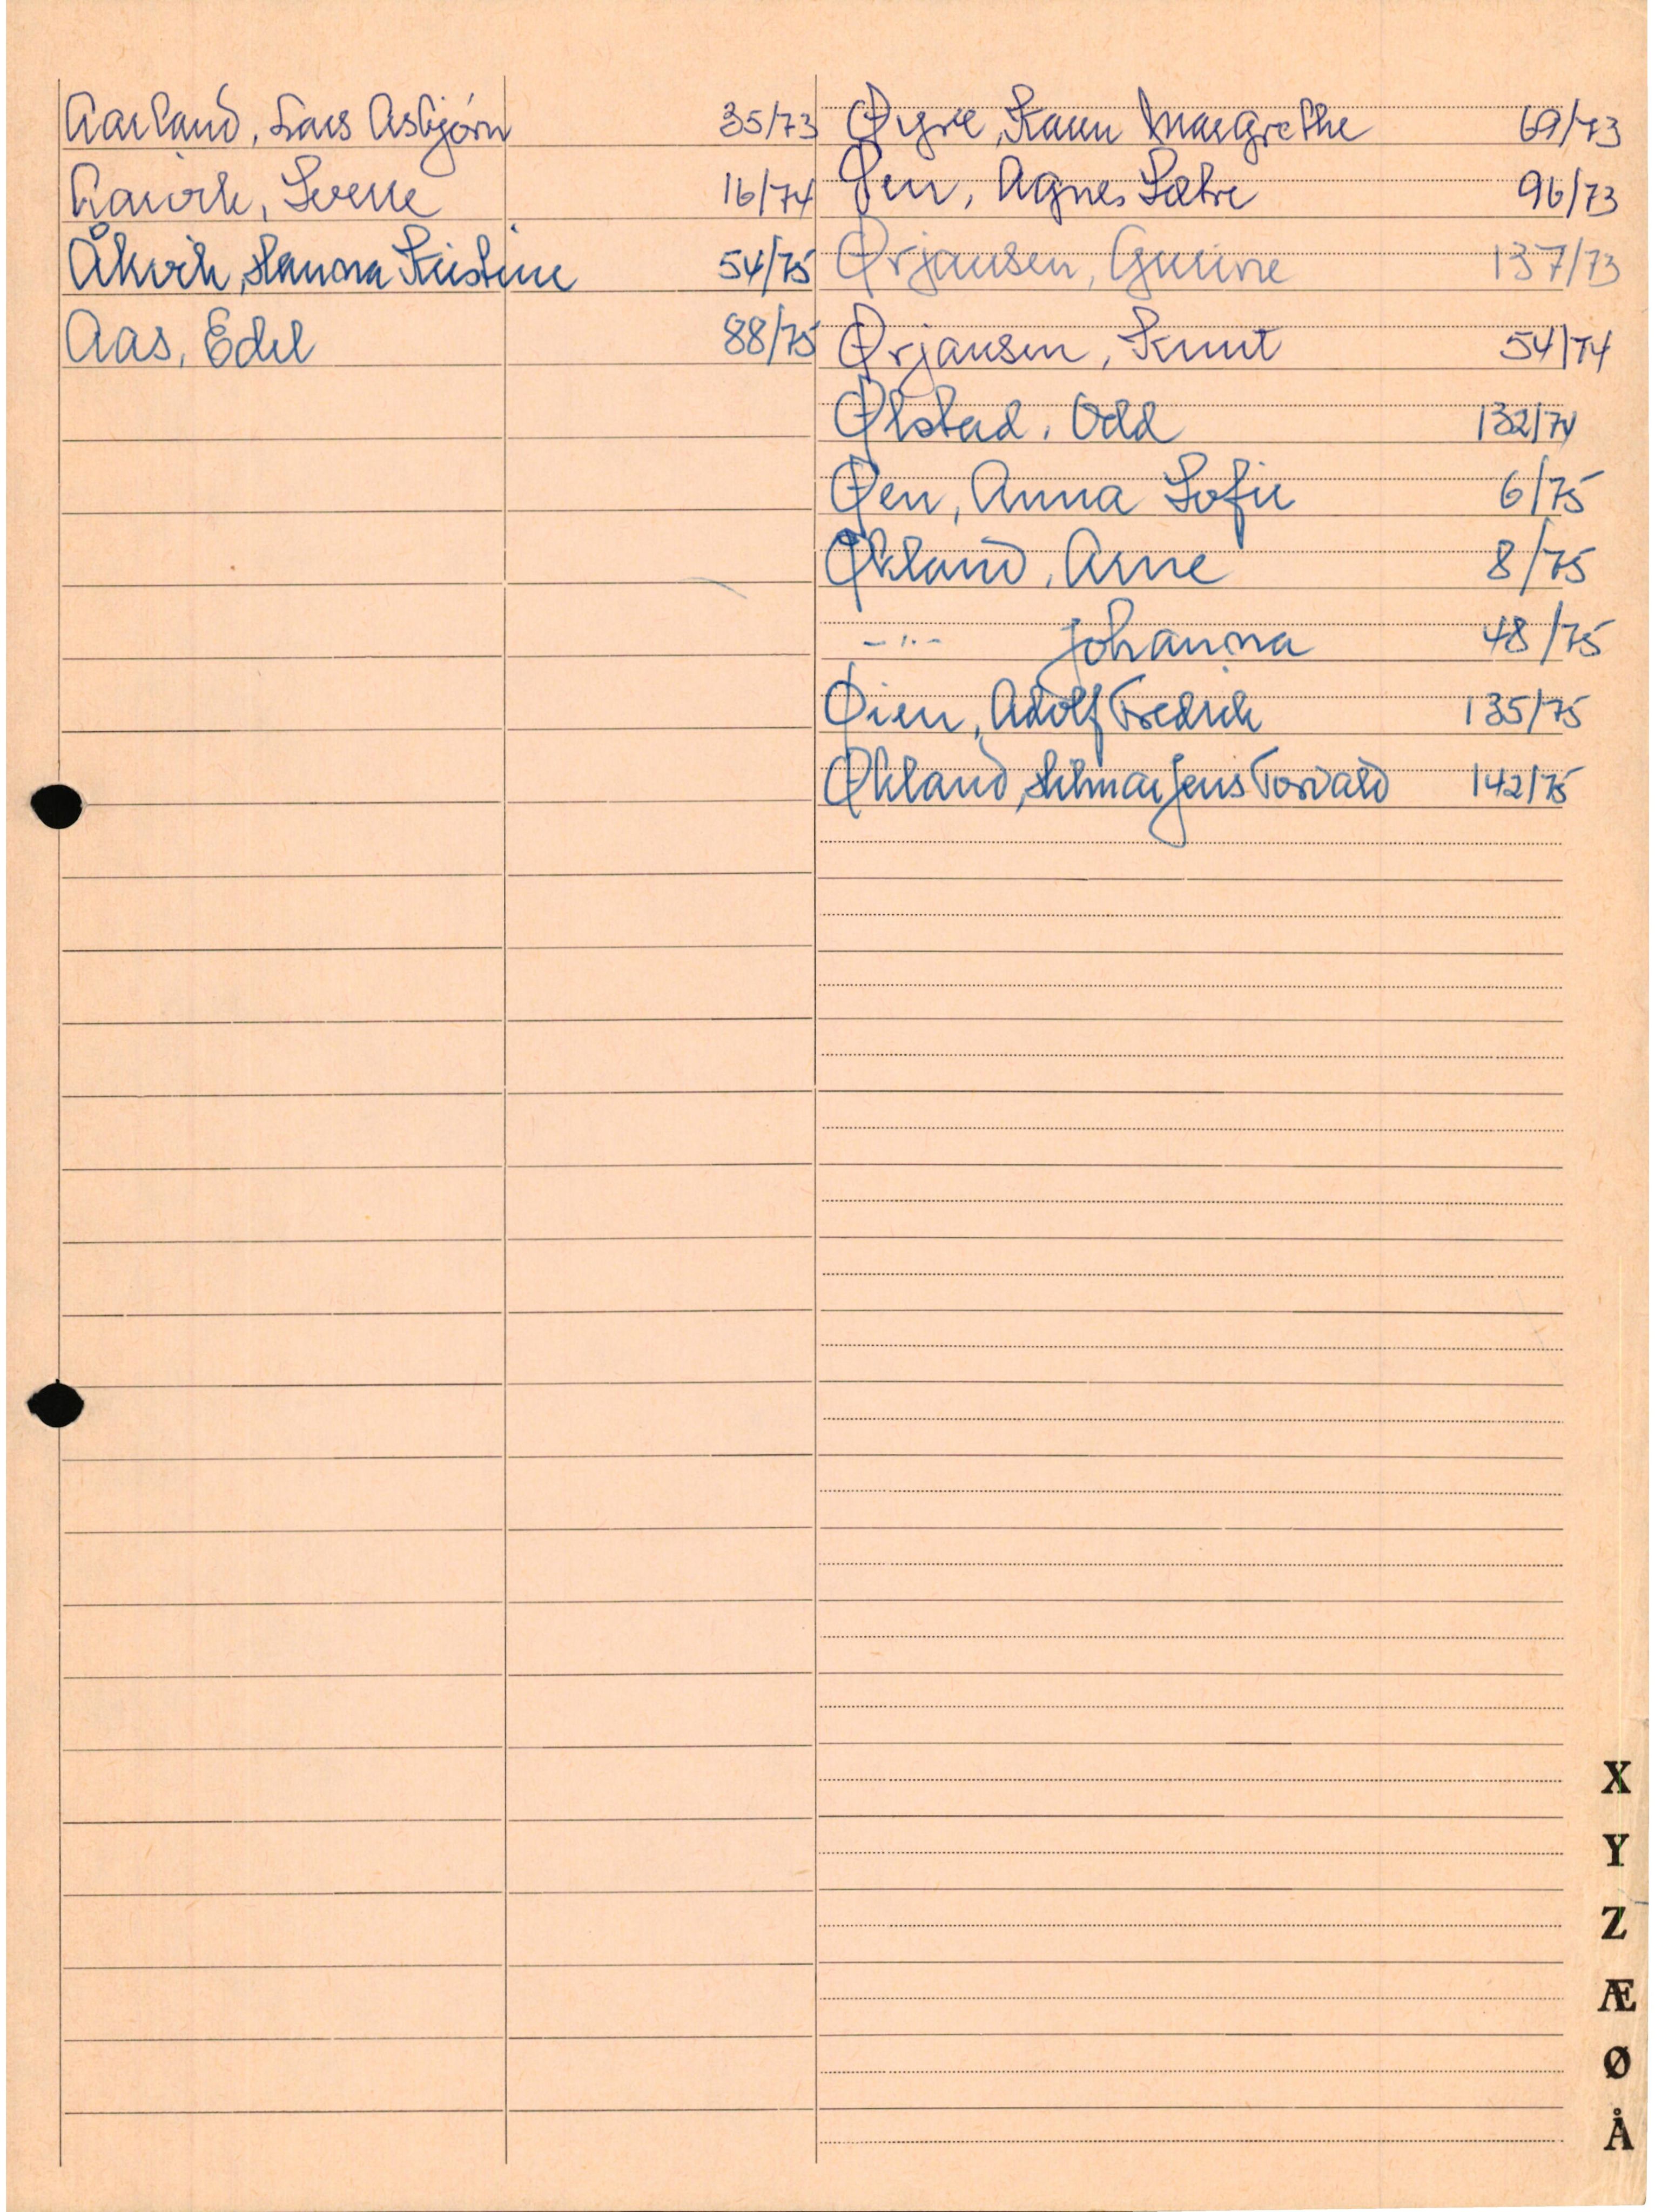 Aarland, Lars Asbjørn 35/73
Aarvik, Sverre 16/74
Åkvik, Hanna Kristine 54/75
Aas, Edel 88/75
Øyre, Karen Margrethe 69/73
Øen, Agnes Sætre 96/73
Ørjansen, Gurine 137/73
Ørjansen, Knut 54/74
Ølstad, Odd 132/74
Øen, Anna Sofie 6/75
Økland, Arne 8/75
-"- Johanna 48/75
Øien, Adolf Fredrik 135/75
Økland, Hilmar Jens Torvald 142/75
X
Y
Z
Æ
Ø
Å